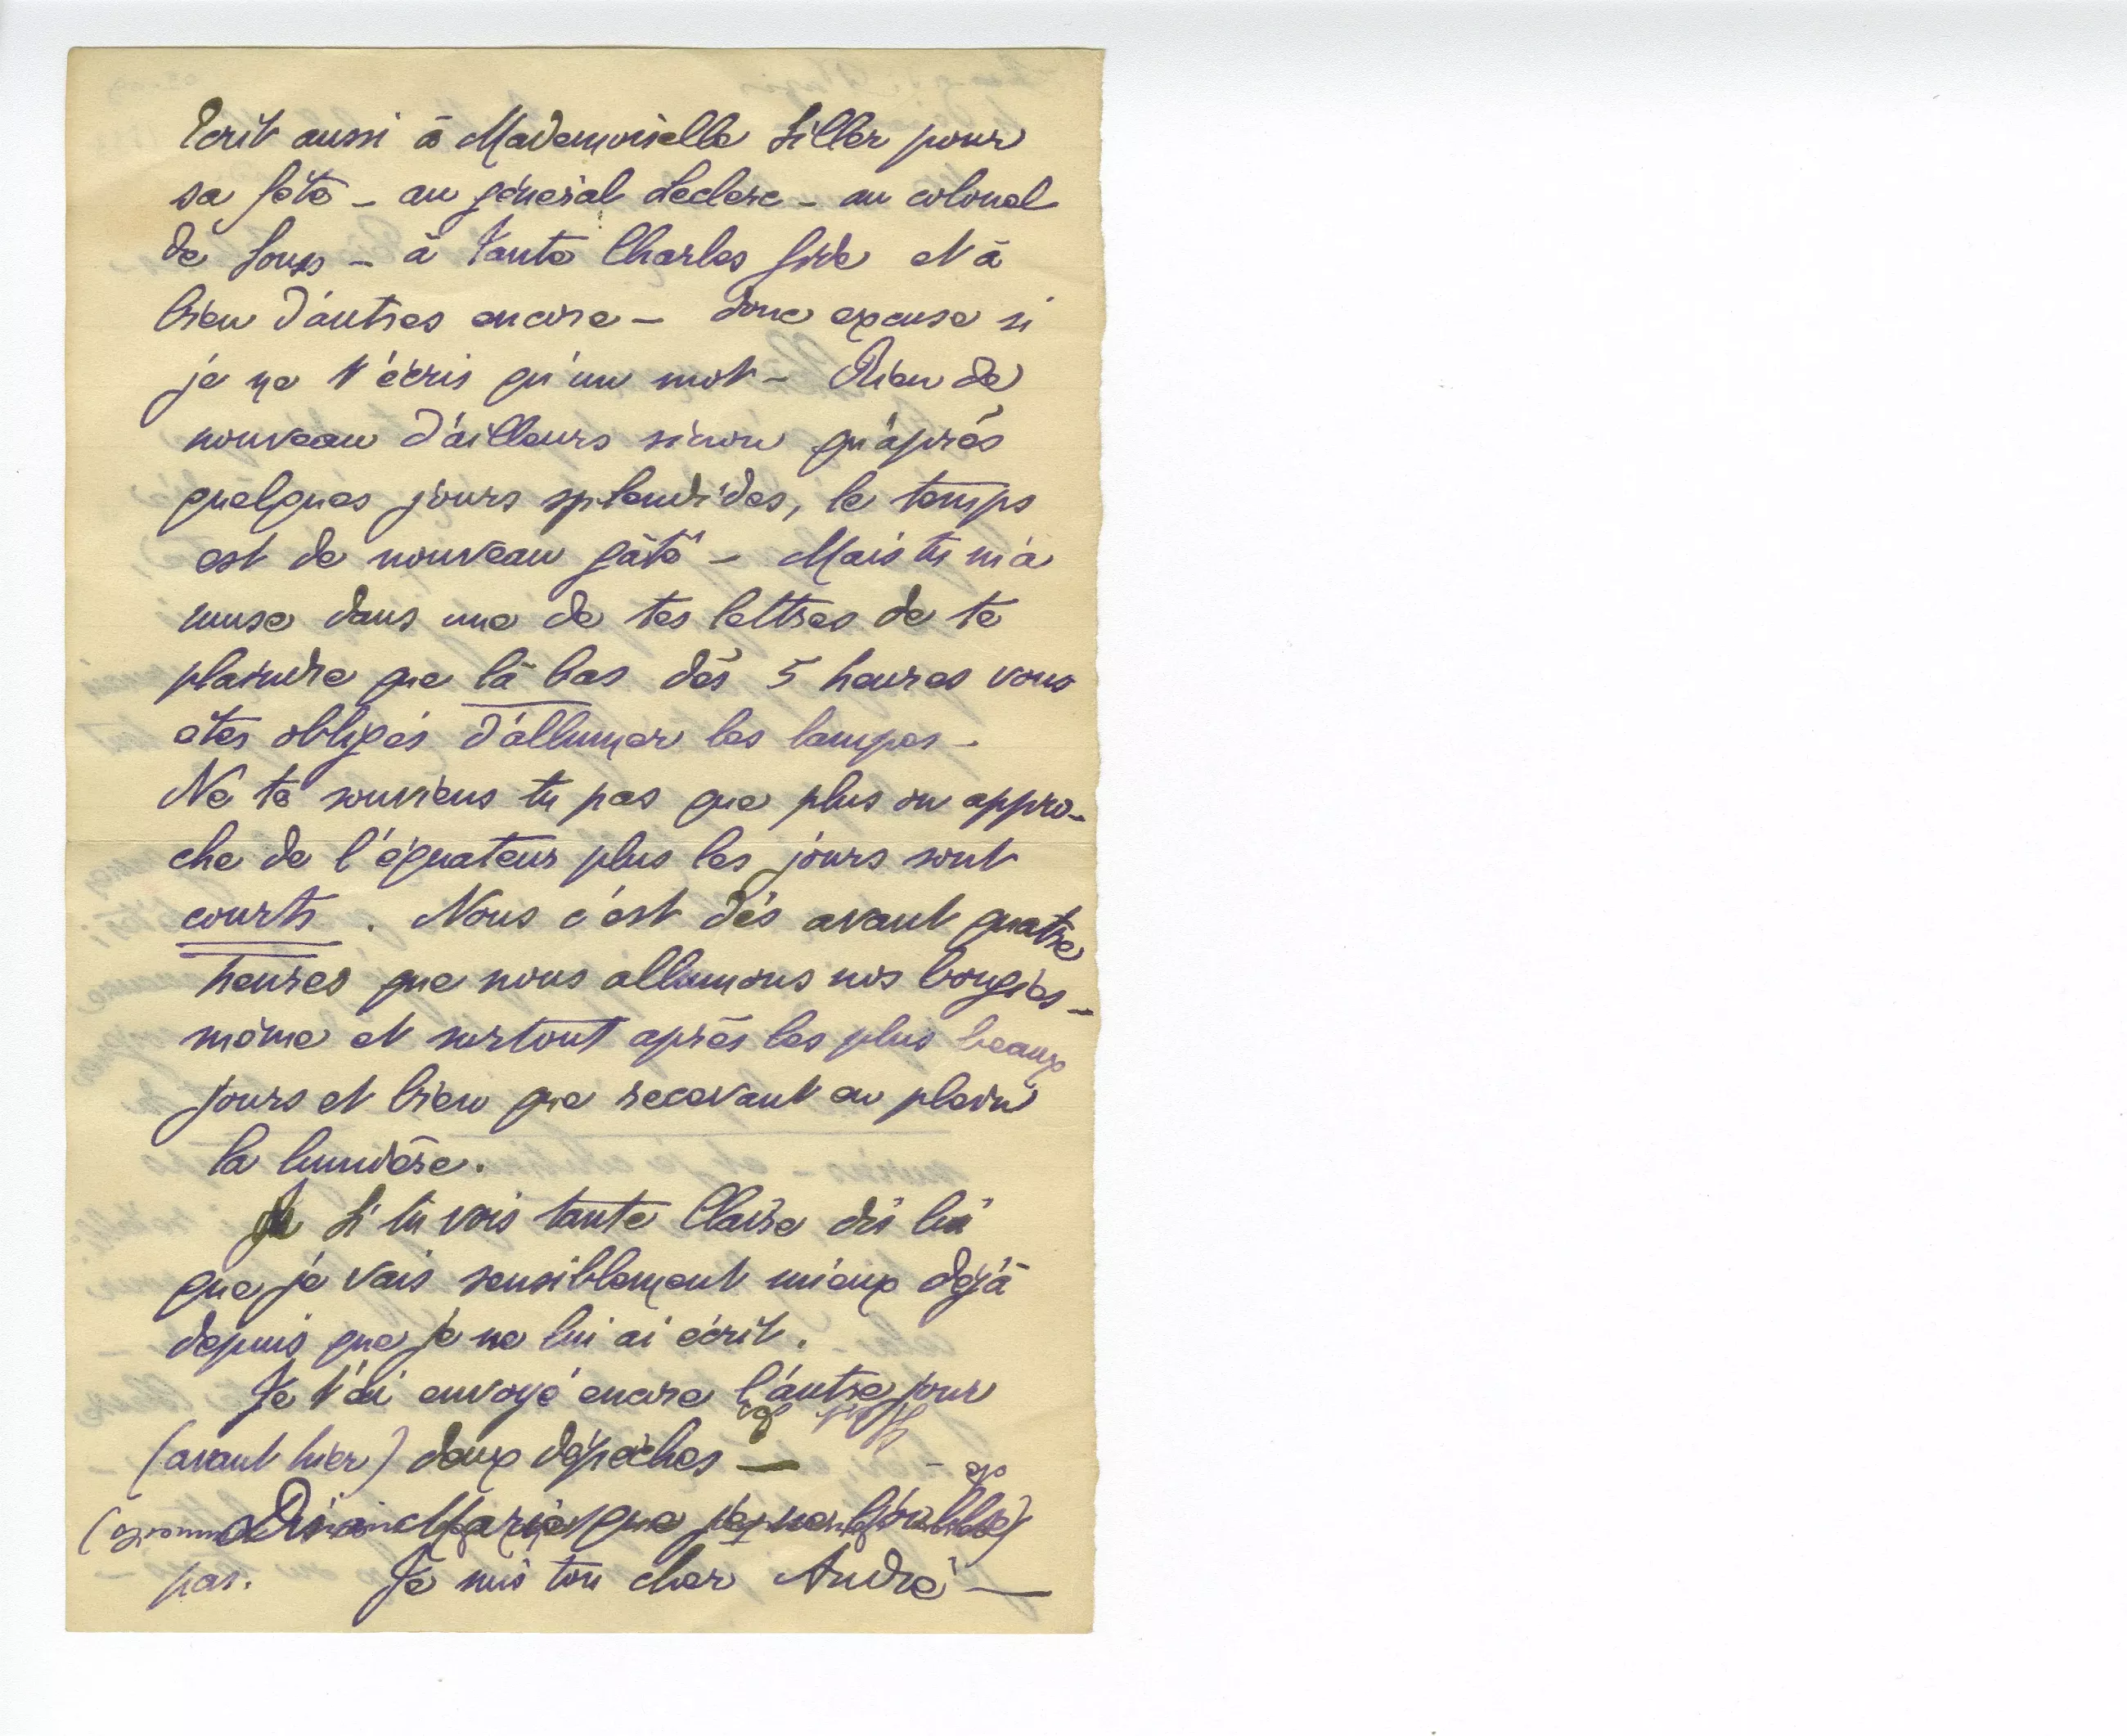 écrit aussi à Mademoiselle Siller pour
sa fête – au général Leclerc – au colonel
de – à Tante Charles Gide et à
bien d'autres encore – donc excuse si
je ne t'écris qu'un mot – Rien de
nouveau d'ailleurs sinon qu'après
quelques jours splendides, le temps
est de nouveau gâté – Mais tu m'a
muse dans une de tes lettres de te
plaindre que là bas dès 5 heures vous
êtes obligés d'allumer les lampes –
Ne te souviens tu pas que plus on appro-
che de l'équateur plus les jours sont
courts. Nous c'est dès avant quatre
heures que nous allumons nos bougies –
même et surtout après les plus beaux
jours et bien que recevant en plein
la lumière.
Si tu vois tante Claire dis lui
que je vais sensiblement mieux déjà
depuis que je ne lui ai écrit.
Je t'ai envoyé encore l'autre jour
(avant hier) deux dépêches –
Dis à Marie que je ne l'oublie
pas. Je suis ton cher André –